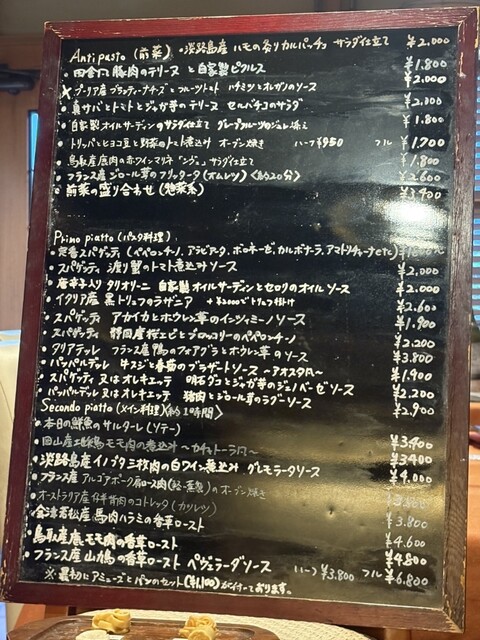 Antipasto (前菜) ・淡路島産 ハモの炙りカルパッチョ サラダ仕立て ¥2.000
・田舎風豚肉のテリーヌ と 自家製ピクルス ¥1.800
プーリア産 ブラッティーナチーズとフルーツトマト ハチミツとオレガノのソース ¥2.000
・真サバとトマトとジャガ芋のテリーヌ セルバチコのサラダ ¥2.000
・自家製オイルサーディンのサラダ仕立て グレープフルーツのジュレ添え ¥1.800
・トリッパとヒヨコ豆と野菜のトマト煮込み オーブン焼き ハーフ¥950 フル ¥1.700
・鳥取産鹿肉の赤ワインマリネ サラダ仕立て ¥1.800
・フランス産 ジロール茸のフリッタータ (オムレツ) 〈約20分〉 ¥2.600
・前菜の盛り合わせ (惣菜系) ¥3.400
Primo piatto (パスタ料理)
・定番スパゲッティ (ペペロンチーノ, アラビアータ, ボロネーゼ, カルボナーラ, アマトリチャーナetc)
・スパゲッティ 渡り蟹のトマト煮込みソース ¥2.000
・唐辛子入り タリオリーニ 自家製オイルサーディンとセロリのオイルソース ¥2.000
・イタリア産 黒トリュフのラザニア +¥2000でトリュフ掛け ¥2.600
・スパゲッティ アカイカとホウレン草のインツィミーノソース ¥1.900
・スパゲッティ 静岡産桜エビとブロッコリーのペペロンチーノ ¥2.200
・タリアテッレ フランス産鴨のフォアグラとホウレン草のソース ¥3.800
・パッパルデッレ 牛スジと春菊のブラザートソース 〜アオスタ風〜 ¥1.900
・スパゲティ 又はオレキエッテ 明石ダコとジャガ芋のジェノベーゼソース ¥2.200
・パッパルデッレ 又はオレキエッテ 猪肉とジロール茸のラグーソース ¥2.900
Secondo piatto (メイン料理) 〈約1時間〉
・本日の鮮魚のサルターレ (ソテー) ¥3.400
・岡山産 モモ肉の煮込み 〜カチャトーラ風〜 ¥3400
・淡路島産イノブタ三枚肉の白ワイン煮込み グレモラータソース ¥4.000
・フランス産 アルコアポーク肩ロース肉(軽い薫製)のオーブン焼き
・オーストラリア産 仔羊背肉のコトレッタ (カツレツ) ¥3.800
・会津若松産 馬肉ハラミの香草ロースト ¥4.600
・鳥取産鹿モモ肉の香草ロースト ¥4.800
・フランス産山鳩の香草ロースト ペヴェラーダソース ハーフ ¥3.800 フル ¥6.800
※最初とアミューズとパンのセット(¥1,100)が付いております。